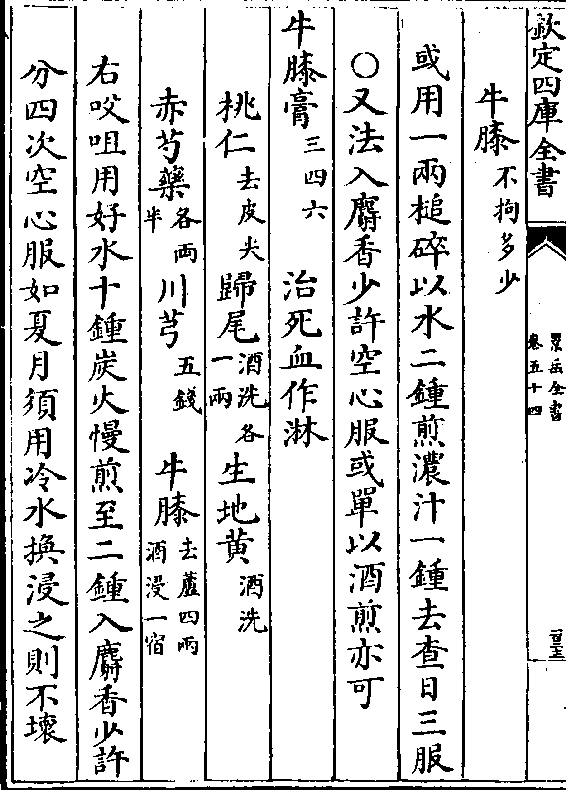 欽定四庫全書
景岳全書
卷五十四
牛膝不拘多少
或用一兩槌碎以水二鍾煎濃汁一鍾去查日三服
○又法入麝香少許空心服或單以酒煎亦可
牛膝膏三四六　治死血作淋
桃仁去皮尖歸尾酒洗各一兩生地黄酒洗
赤芍藥各兩半川芎五錢　牛膝去蘆四兩酒浸一宿
右㕮咀用好水十鍾炭火慢煎至二鍾入麝香少許
分四次空心服如夏月須用冷水換浸之則不壞